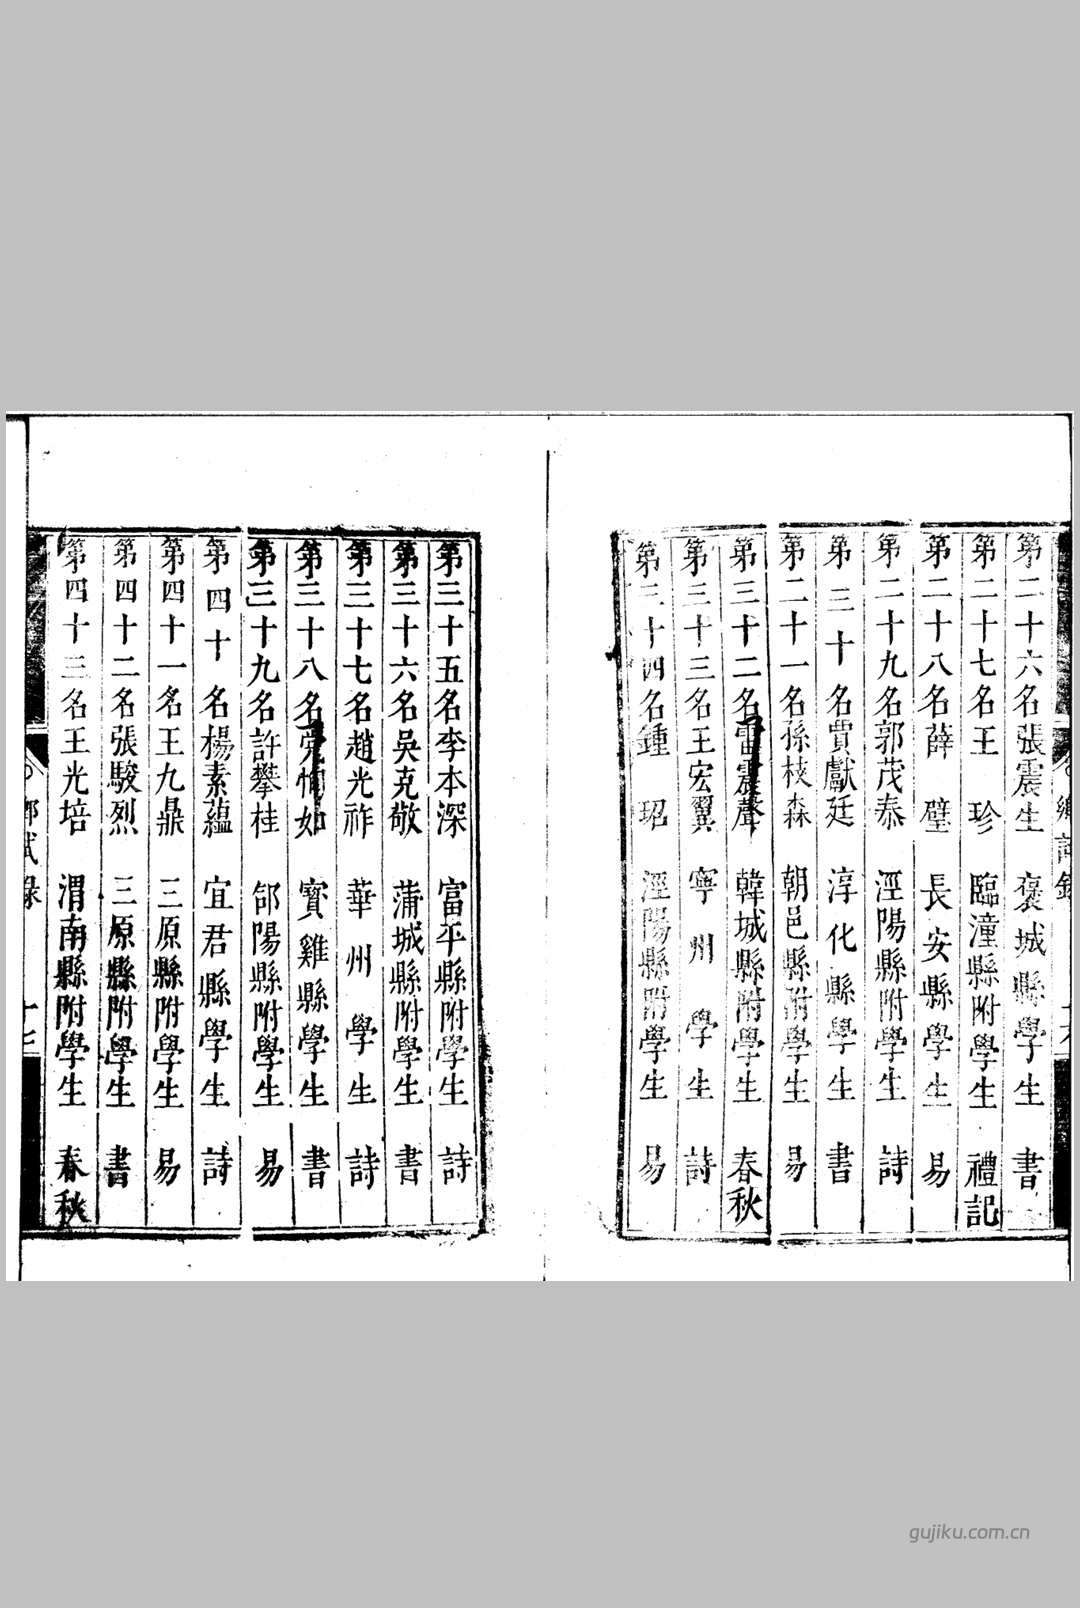 第二十六名張震生 褒城縣學生 書
第二十七名王 珍 臨潼縣附學生 禮記
第二十八名薛 璧 長安縣學生 易
第二十九名郭茂泰 涇陽縣附學生 詩
第三十名賈獻廷 淳化縣學生 書
第三十一名孫枝森 朝邑縣附學生 易
第三十二名雷震聲 韓城縣附學生 春秋
第三十三名王宏翼 寧州學生 詩
第三十四名鍾 玿 涇陽縣附學生 易
第三十五名李本深 富平縣附學生 詩
第三十六名吳克敬 蒲城縣附學生 書
第三十七名趙光祚 華州學生 詩
第三十八名党如 寳雞縣學生 書
第三十九名許攀桂 郃陽縣附學生 易
第四十名楊素蘊 宜君縣學生 詩
第四十一名王九鼎 三原縣附學生 易
第四十二名張駿烈 三原縣附學生 書
第四十三名王光培 渭南縣附學生 春秋
鄉試錄 十七
gujiku.com.cn